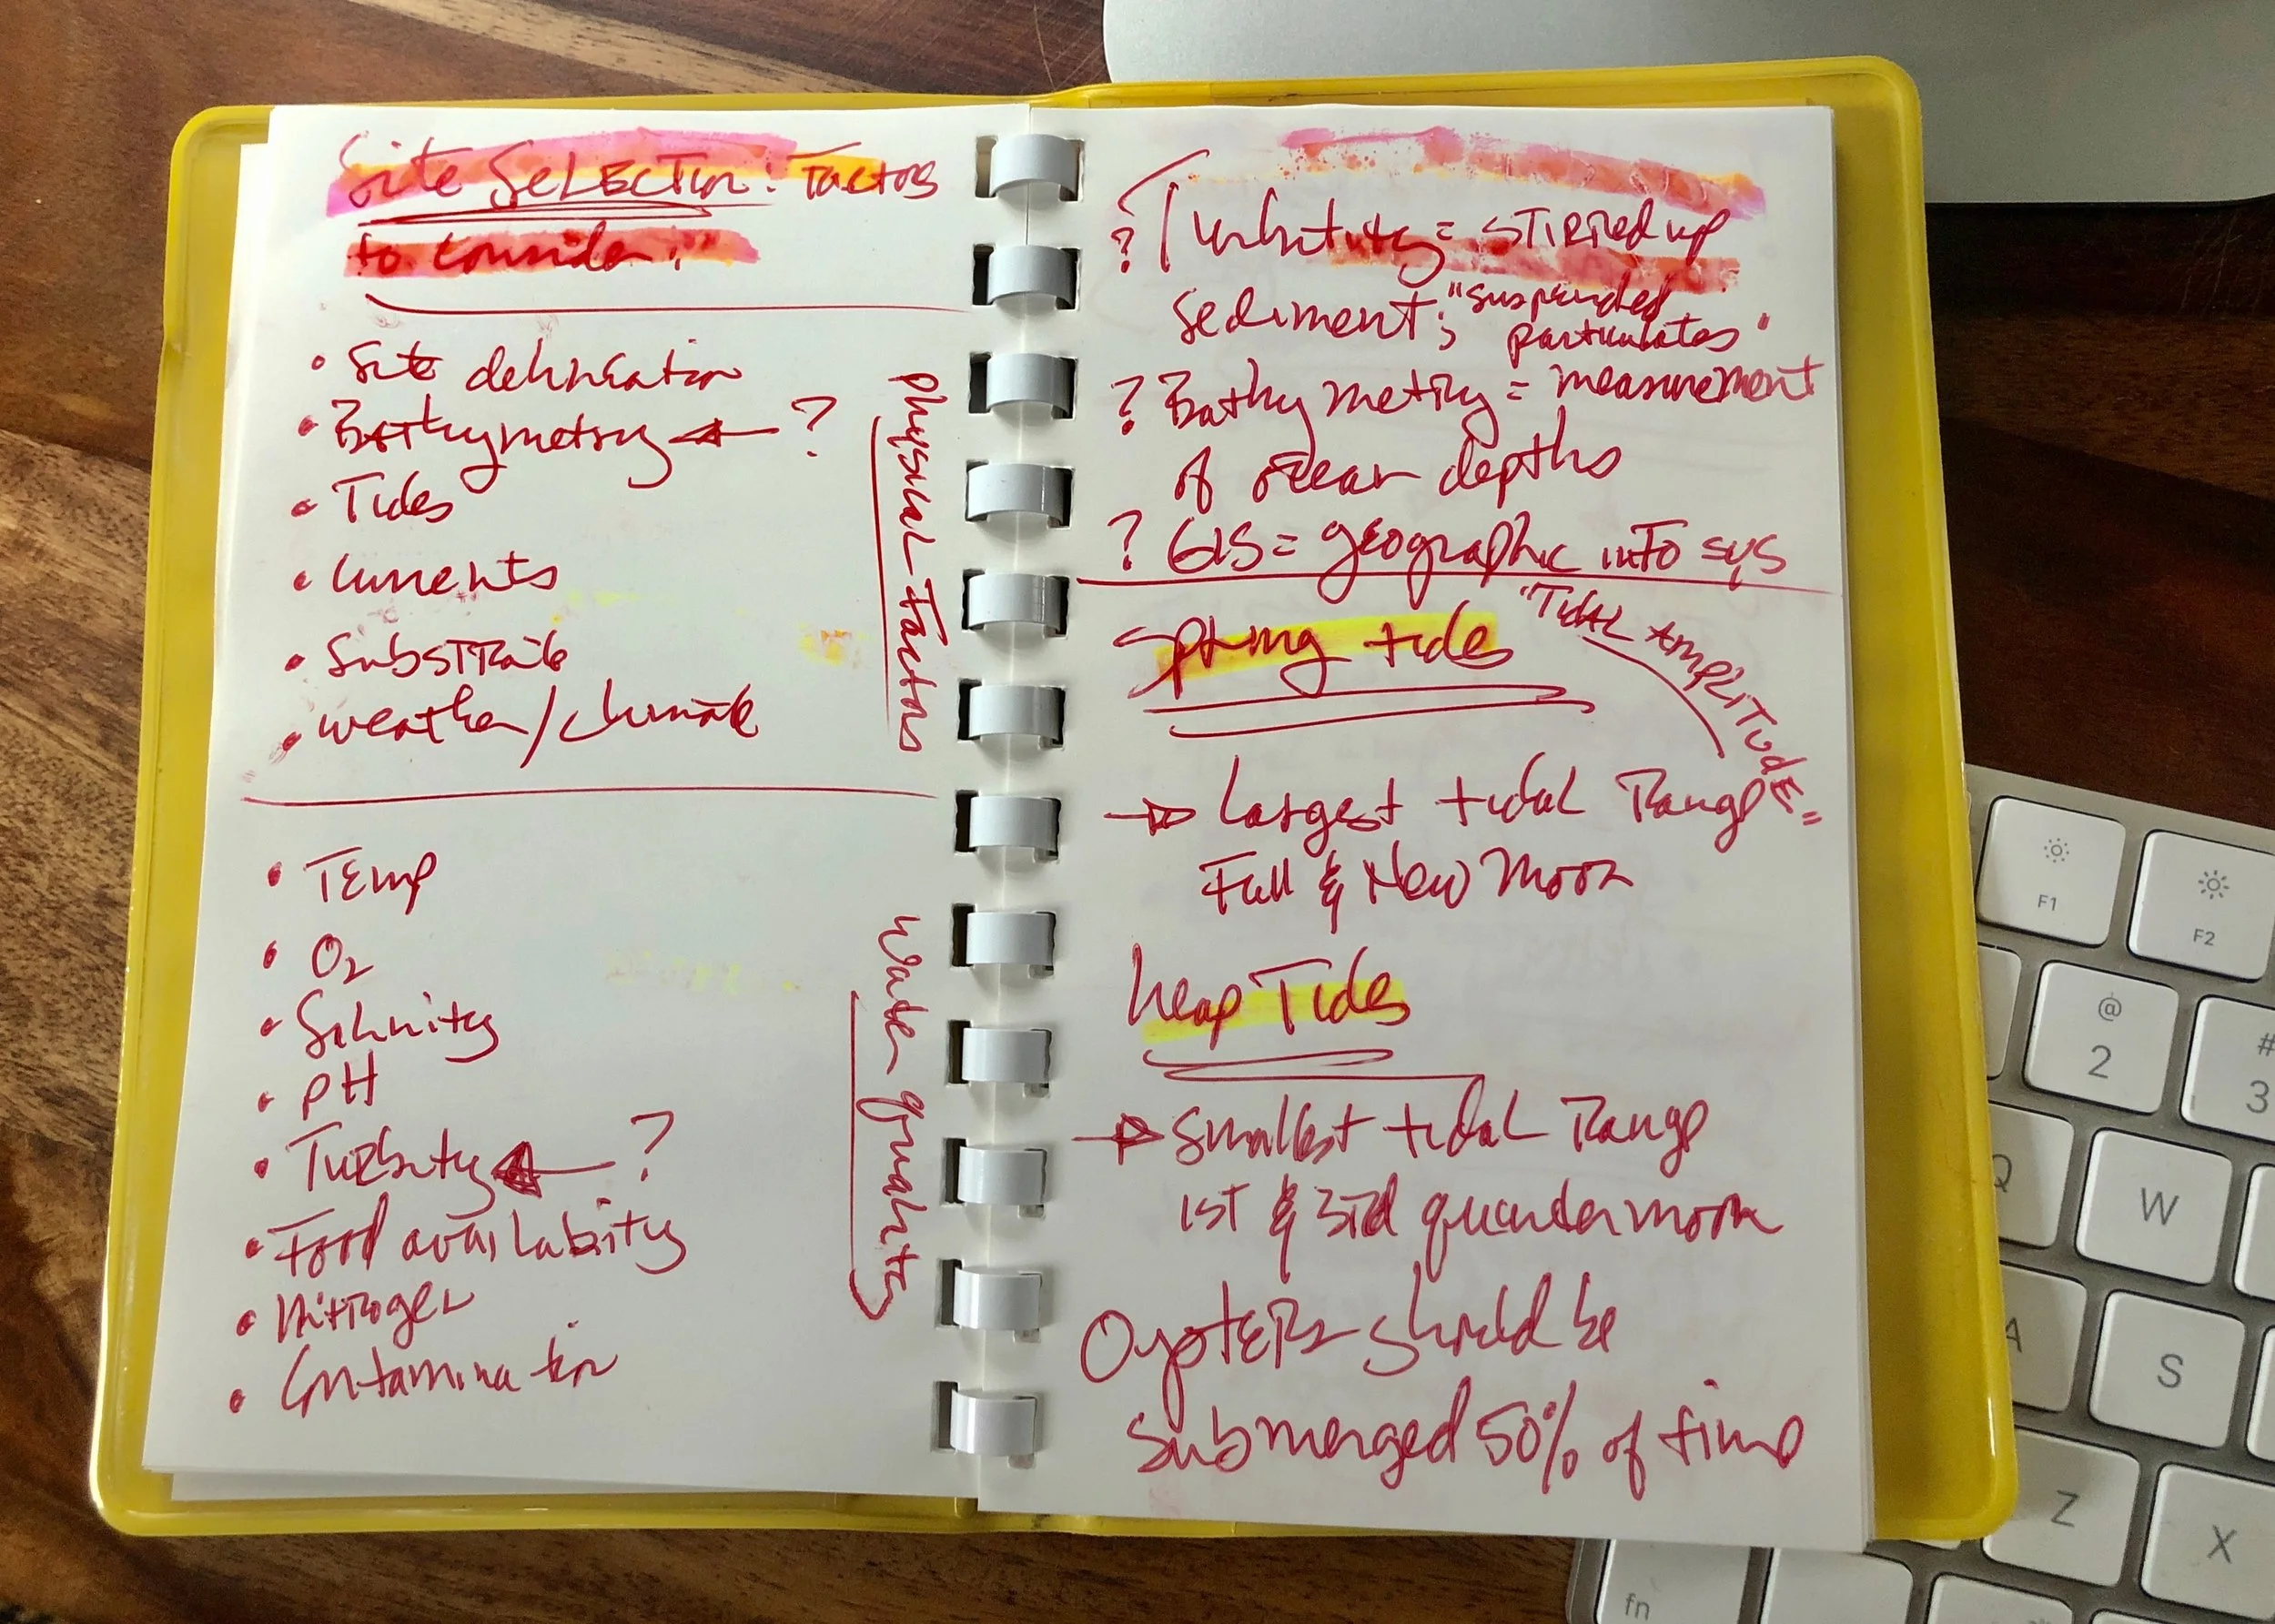 Site Selection: Factors
to consider:
• Site delineation
• Bathymetry ← ?
• Tides
• Currents
• Substrate
• weather/climate
Physical Factors
• Temp
• O2
• Salinity
• pH
• Turbity ← ?
• Food availability
• Nitrogen
• Contamination
Water quality
? Turbitity = stirred up
sediment; "suspended
particulates"
? Bathymetry = measurement
of ocean depths
? GIS = geographic info sys
Spring tides
"Tidal Amplitude"
→ Largest tidal Range
Full & New Moon
Neap Tides
→ Smallest tidal Range
1st & 3rd quarter moon
Oysters should be
submerged 50% of time
F1
F2
@
2
#
3
Q
W
A
S
Z
X
fn